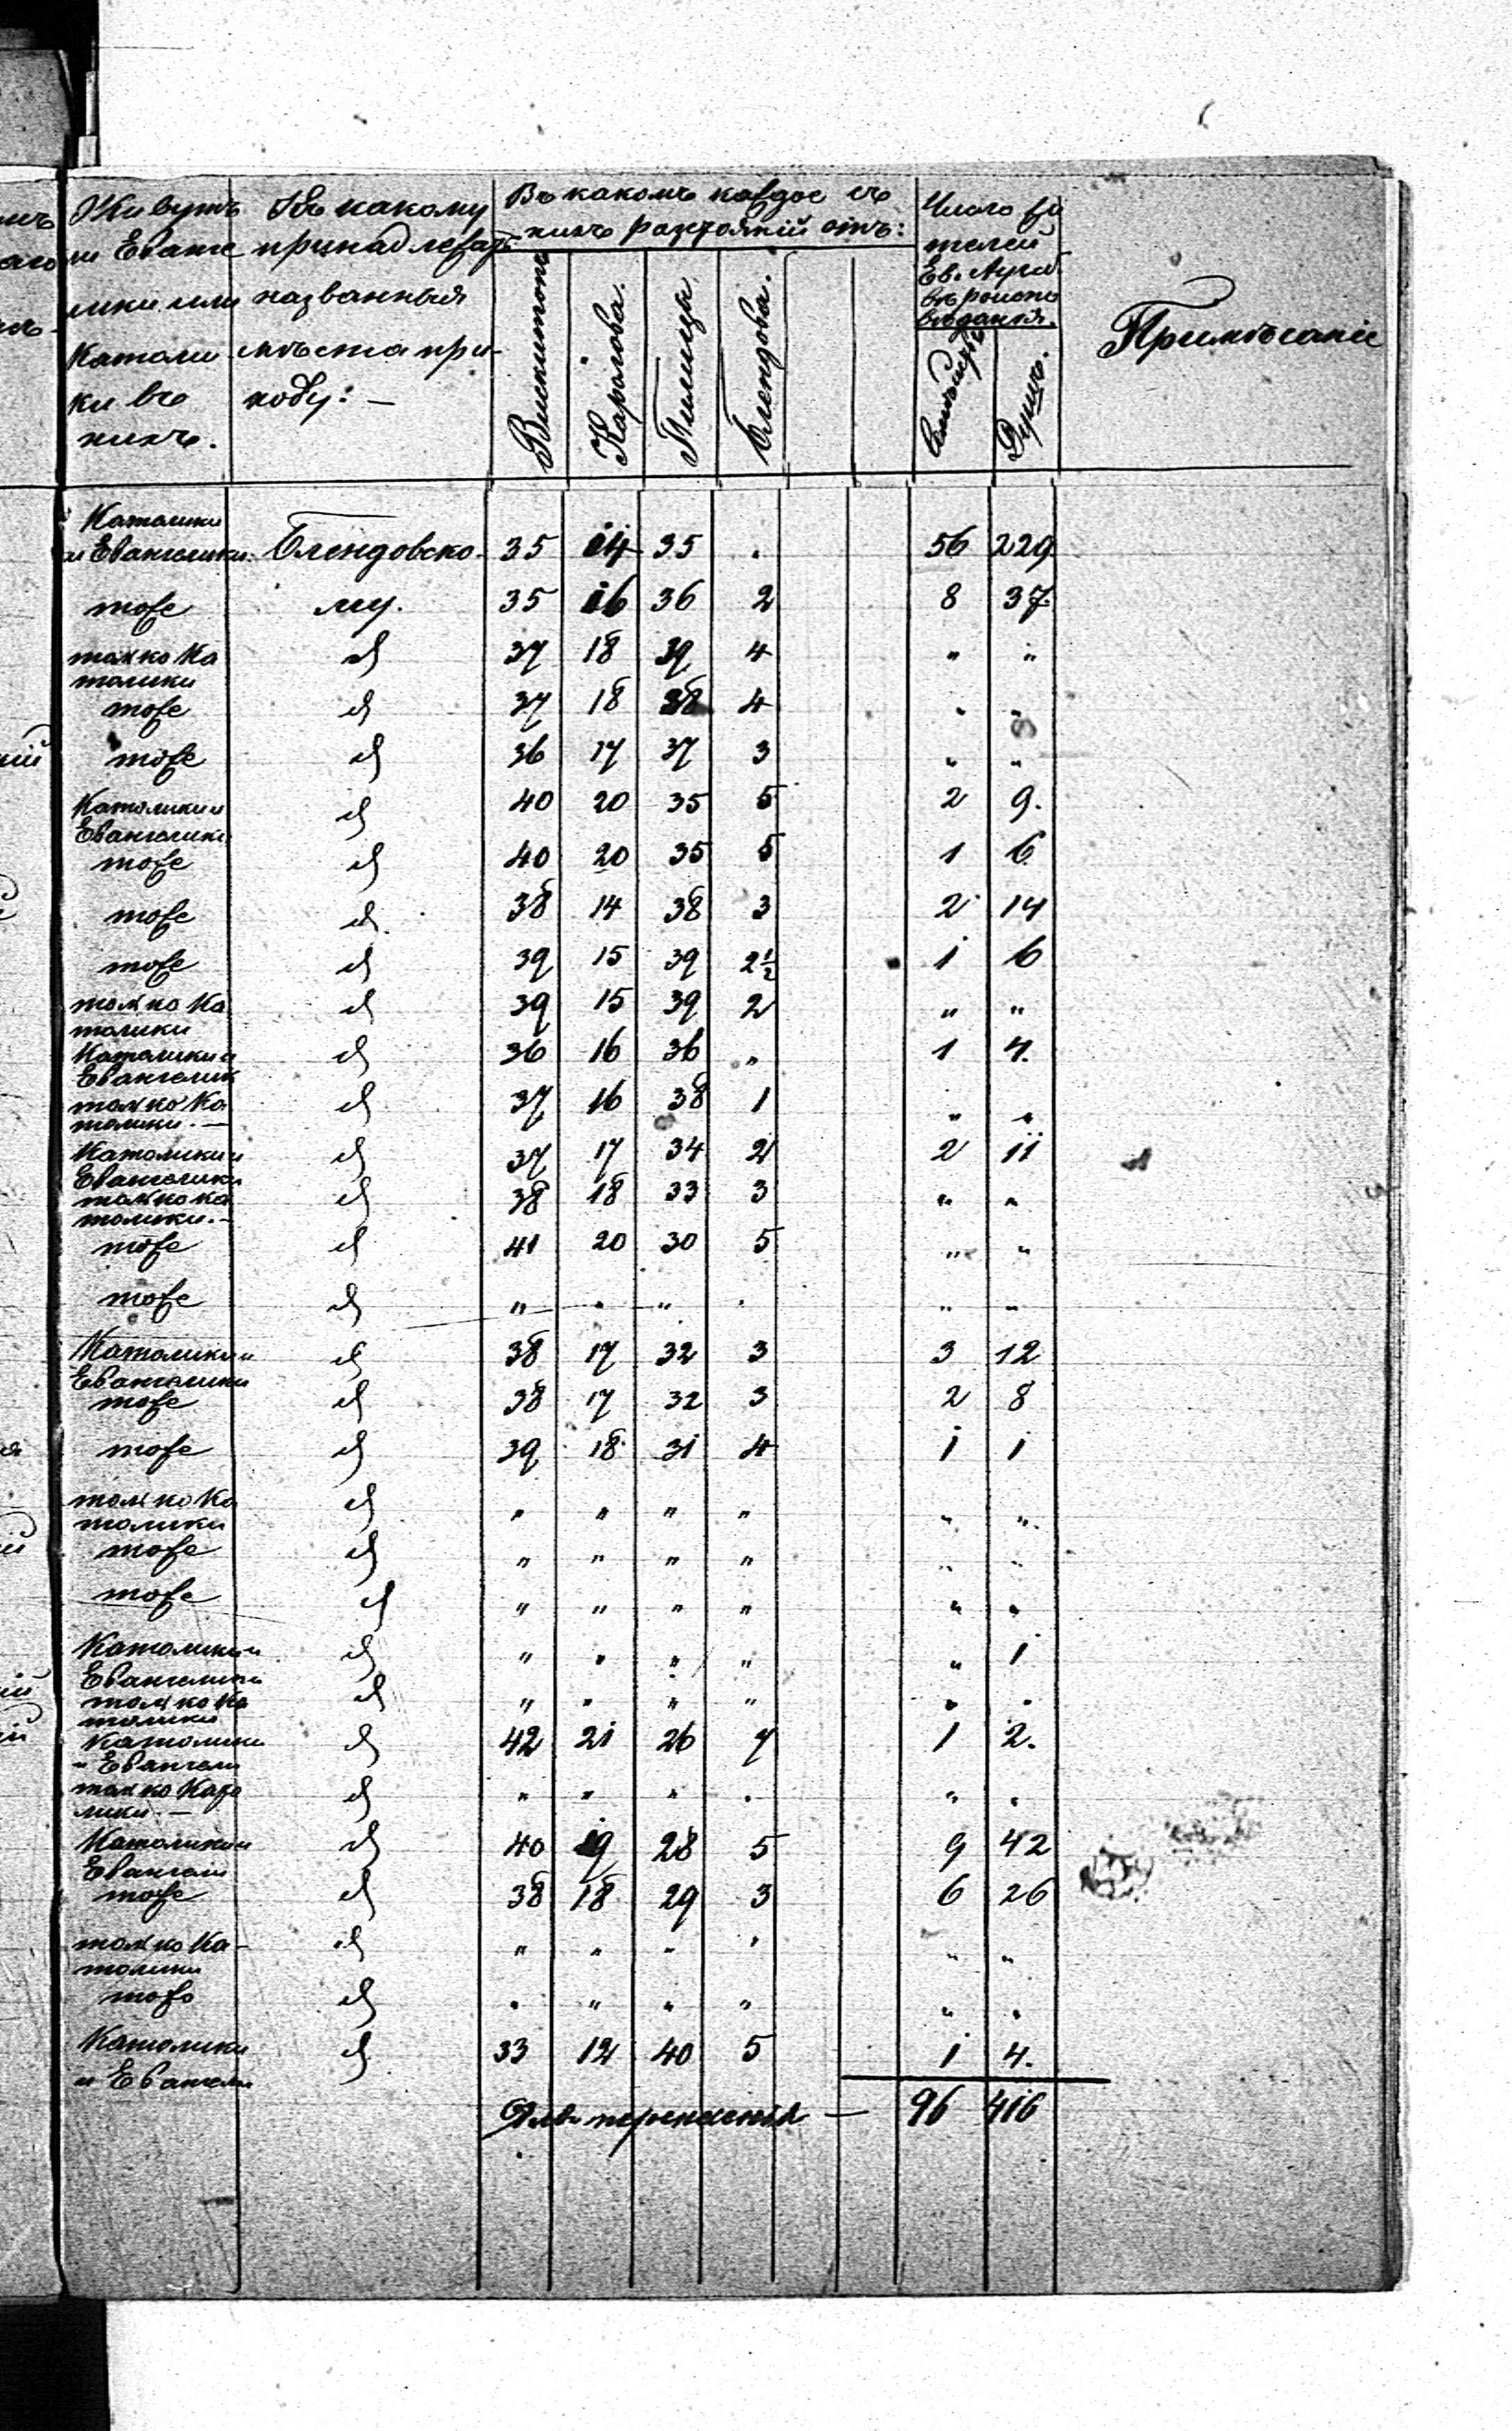 Живутъ
ли Еванге
лики или
Католи
ки въ
нихъ.
Къ какому
принадлежатъ
названныя
мѣста при-
ходу: —
Въ какомъ каждое съ
нихъ разтояній отъ:
Вискитокъ
Каролова.
Пилица
Блендова.
Число жи
телей
Ев. Аугсб
въ районѣ
вѣданія.
Семействъ
Душъ.
Примѣчаніе
Католики
и Евангелики. Блендовско- 35 14 35 . 56 229
тоже му. 35 16 36 2 8 37
толко Ка
толики d 37 18 39 4 " "
тоже d 37 18 38 4 " "
тоже d 36 17 37 3 " "
Католики и
Евангелики d 40 20 35 5 2 9.
тоже d 40 20 35 5 1 6
тоже d. 38 14 38 3 2 14
тоже d 39 15 39 2½ 1 6
толко Ка
толики d 39 15 39 2 " "
Католики и
Евангелик d 36 16 36 " 1 4.
толко Ка
толики. — d 37 16 38 1 " "
Католики и
Евангелики d 37 17 34 2 2 11
толко ка
толики. — d 38 18 33 3 " "
тоже d 41 20 30 5 " "
тоже d " " " " " "
Католики и
Евангелики d 38 17 32 3 3 12
тоже d 38 17 32 3 2 8
тоже d 39 18 31 4 1 1
толко Ка
толики d " " " " " "
тоже d " " " " " "
тоже d " " " " " "
Католики и
Евангелики d " " " " " 1
толко Ка
толики d " " " " " "
Католики
и Евангели d 42 21 26 7 1 2.
толко Като
лики. — d " " " " " "
Католики и
Евангели d 40 19 28 5 9 42
тоже d 38 18 29 3 6 26
толко Ка-
толики d " " " " " "
тоже d " " " " " "
Католики
и Евангели d 33 12 40 5 1 4.
Для перенесенія — 96 416